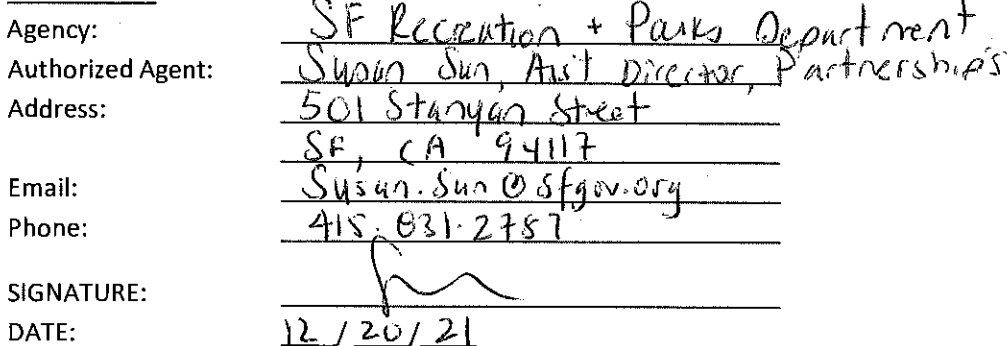 Agency: SF Recreation + Parks Department
Authorized Agent: Susan Sun, Ass't Director, Partnerships
Address: 501 Stanyan Street
SF, CA 94117
Email: Susan.Sun@sfgov.org
Phone: 415.831.2757
SIGNATURE:
DATE: 12/20/21